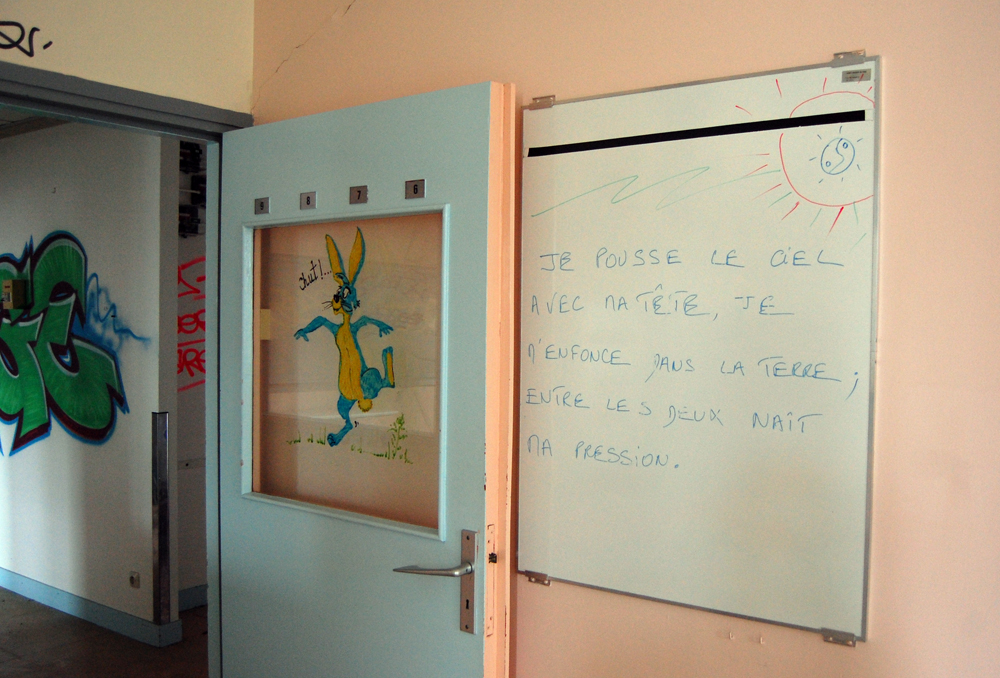 9 8 7 6
chut !...
JE POUSSE LE CIEL
AVEC MA TÊTE, JE
M'ENFONCE DANS LA TERRE ;
ENTRE LES DEUX NAÎT
MA PRESSION.